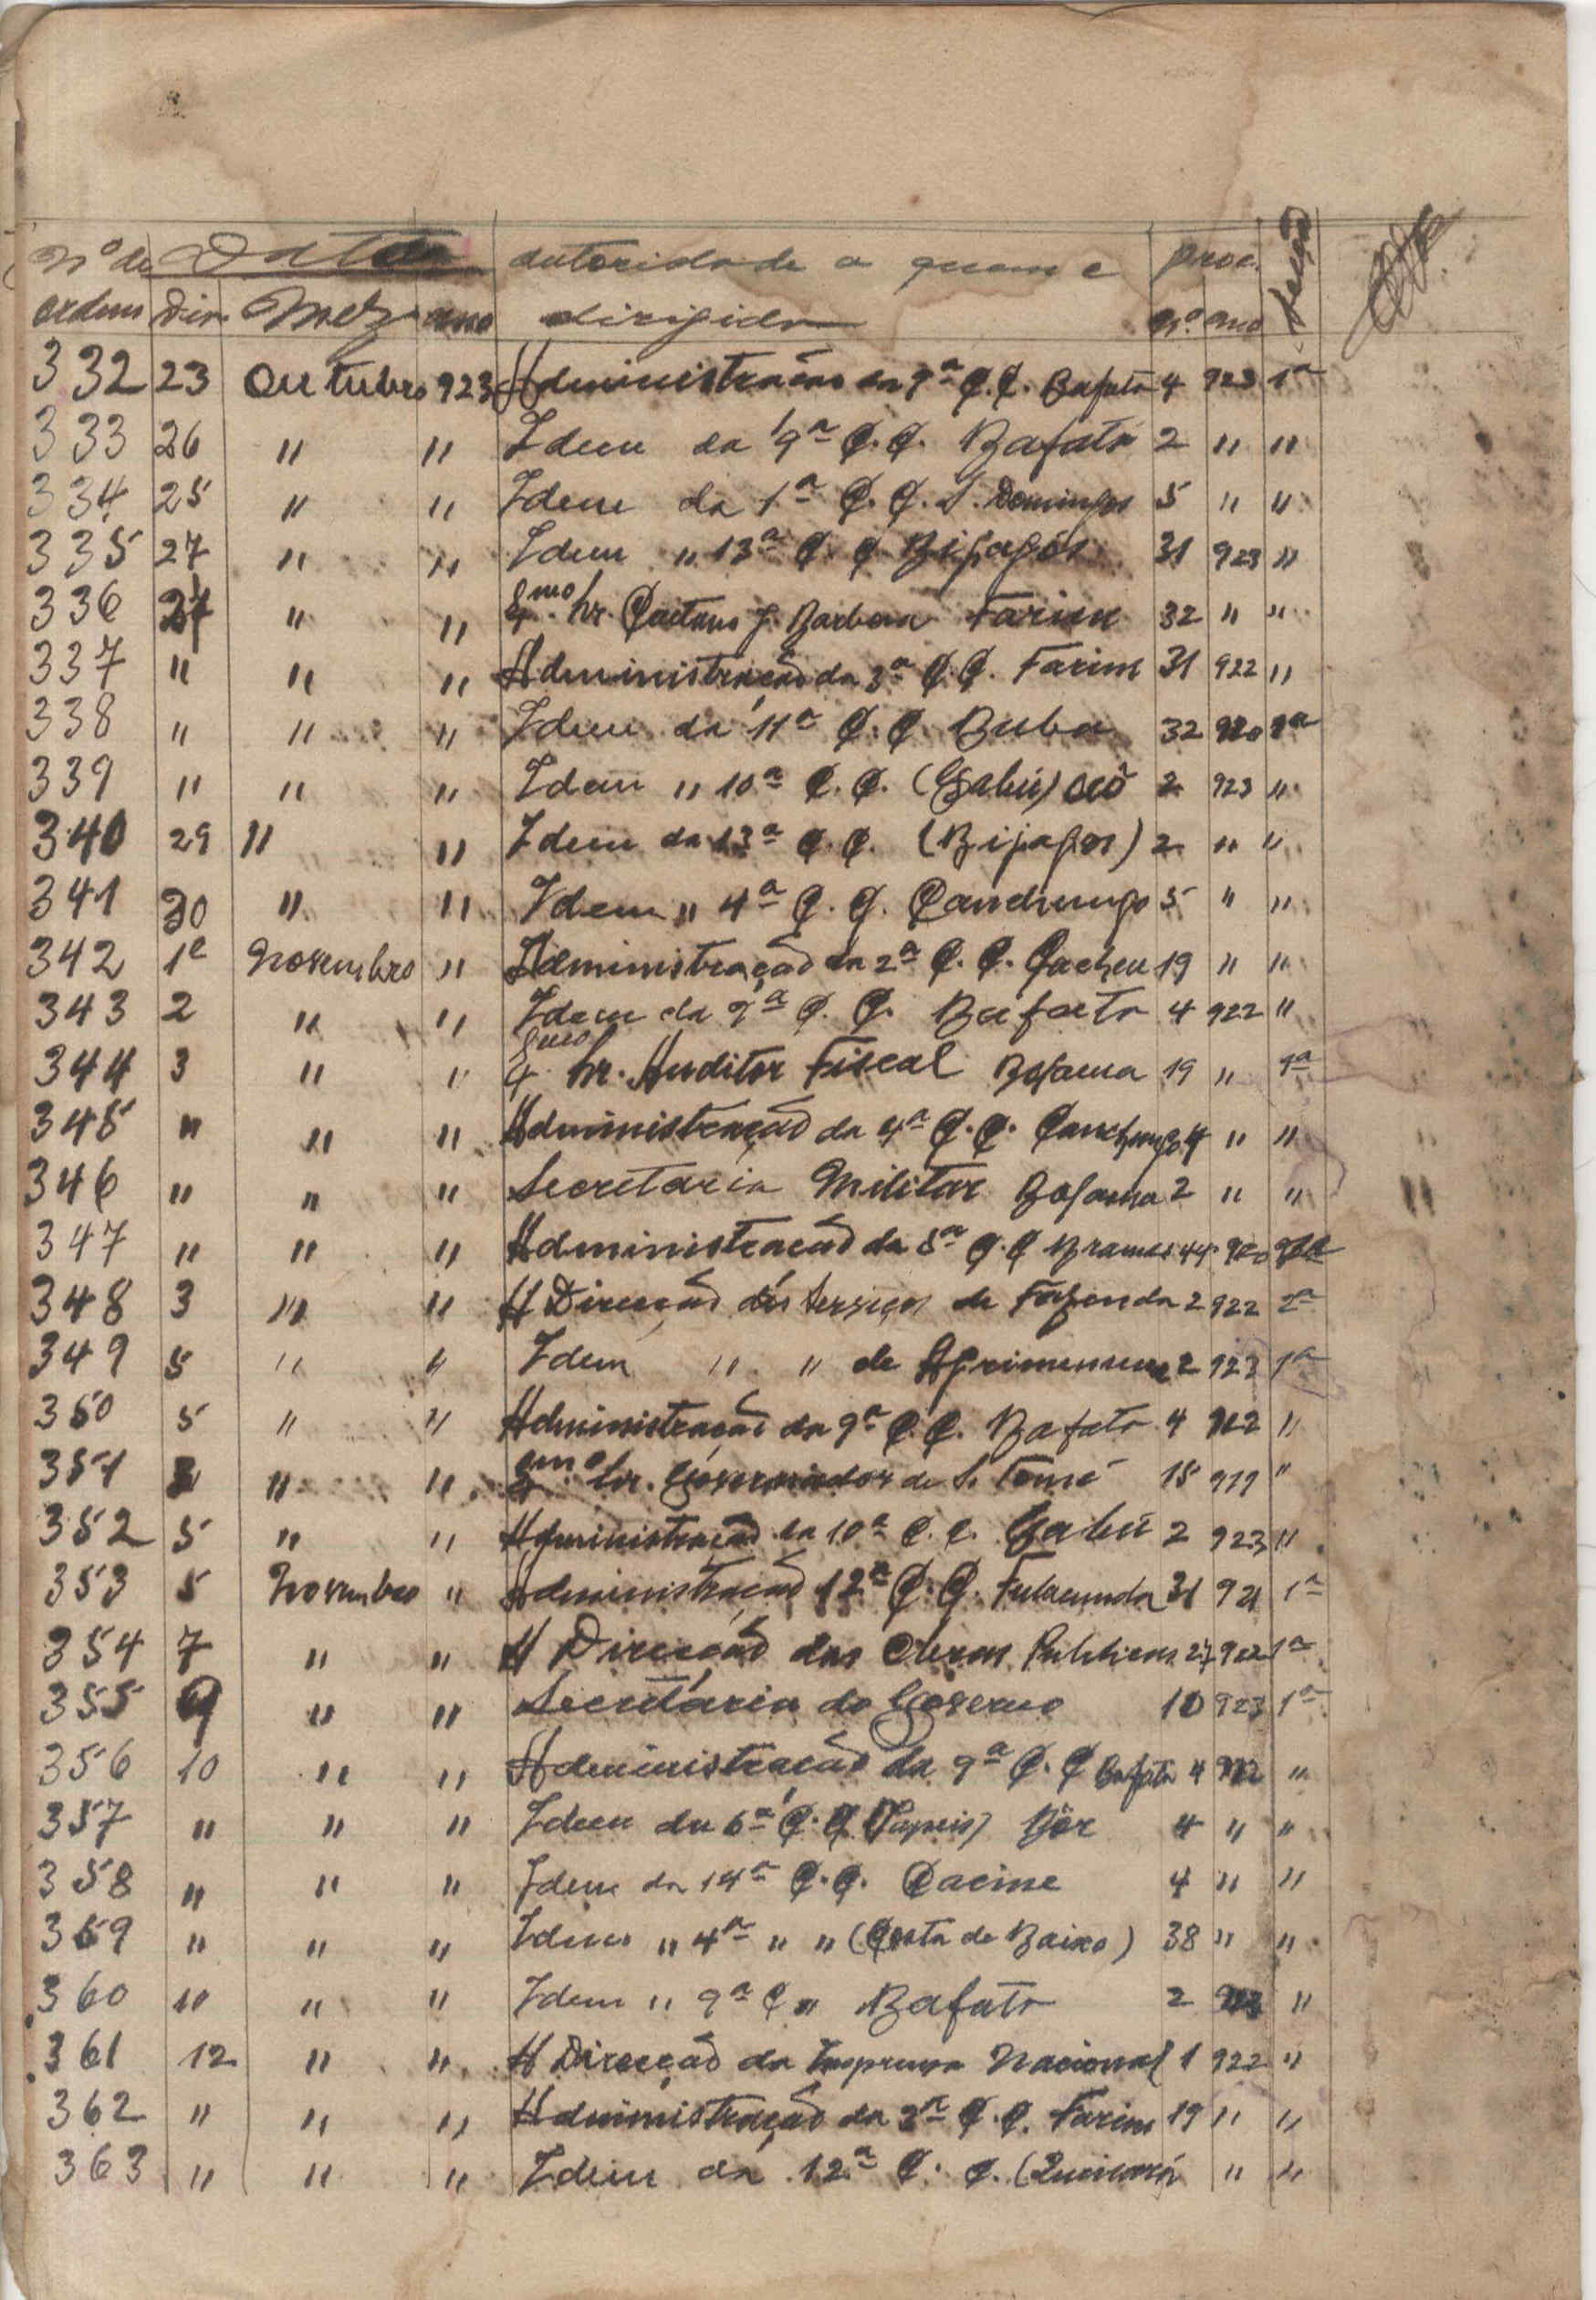 Nº de Data autoridade a quem é proc. secção
ordem Dia Mez ano dirigida nº ano
332 23 Outubro 923 Administração da 9ª C.C. Bafatá 4 923 1ª
333 26 " " Idem da 9ª C.C. Bafatá 2 " "
334 25 " " Idem da 1ª C.C. S. Domingos 5 " "
335 27 " " Idem " 13ª C.C Bijagós 31 923 "
336 27 " " Exmo Sr. Caetano J. Barbosa Farim 32 " "
337 " " " Administração da 3ª C.C. Farim 31 922 "
338 " " " Idem da 11ª C.C. Buba 32 920 1ª
339 " " " Idem " 10ª C.C. (Gabú) 2 923 "
340 29 " " Idem da 13ª C.C. (Bijagos) 2 " "
341 30 " " Idem " 4ª C.C. Canchungo 5 " "
342 1º Novembro " Administração da 2ª C.C. Cacheu 19 " "
343 2 " " Idem da 9ª C.C. Bafatá 4 922 "
344 3 " " Exmo Sr. Auditor Fiscal Bolama 19 " 1ª
345 " " " Administração da 4ª C.C. Canchungo 4 " "
346 " " " Secretaria Militar Bolama 2 " "
347 " " " Administração da 5ª C.C Brames 44 920
348 3 " " A Direcção dos Serviços de Fazenda 2 922 2ª
349 5 " " Idem " " de Agrimensura 2 923 1ª
350 5 " " Administração da 9ª C.C. Bafatá 4 922 "
351 " " Exmo Sr. Governador de S. Tomé 15 "
352 5 " " Administração da 10ª C.C. Gabú 2 923 "
353 5 Novembro " Administração 12ª C.C. Fulacunda 31 921 1ª
354 7 " " A Direcção das Obras Publicas 27 922 1ª
355 9 " " Secretária do Governo 10 923 1ª
356 10 " " Administração da 9ª C.C Bafatá 4 922 "
357 " " " Idem da 6ª C.C (Papeis) Bôr 4 " "
358 " " " Idem da 14ª C.C. Cacine 4 " "
359 " " " Idem " 4ª " " (Costa de Baixo) 38 " "
360 10 " " Idem " 9ª C " Bafatá 2 923 "
361 12 " " A Direcção da Imprensa Nacional 1 922 "
362 " " " Administração da 3ª C.C. Farim 19 " "
363 " " " Idem da 12ª C.C. (Quinará " "